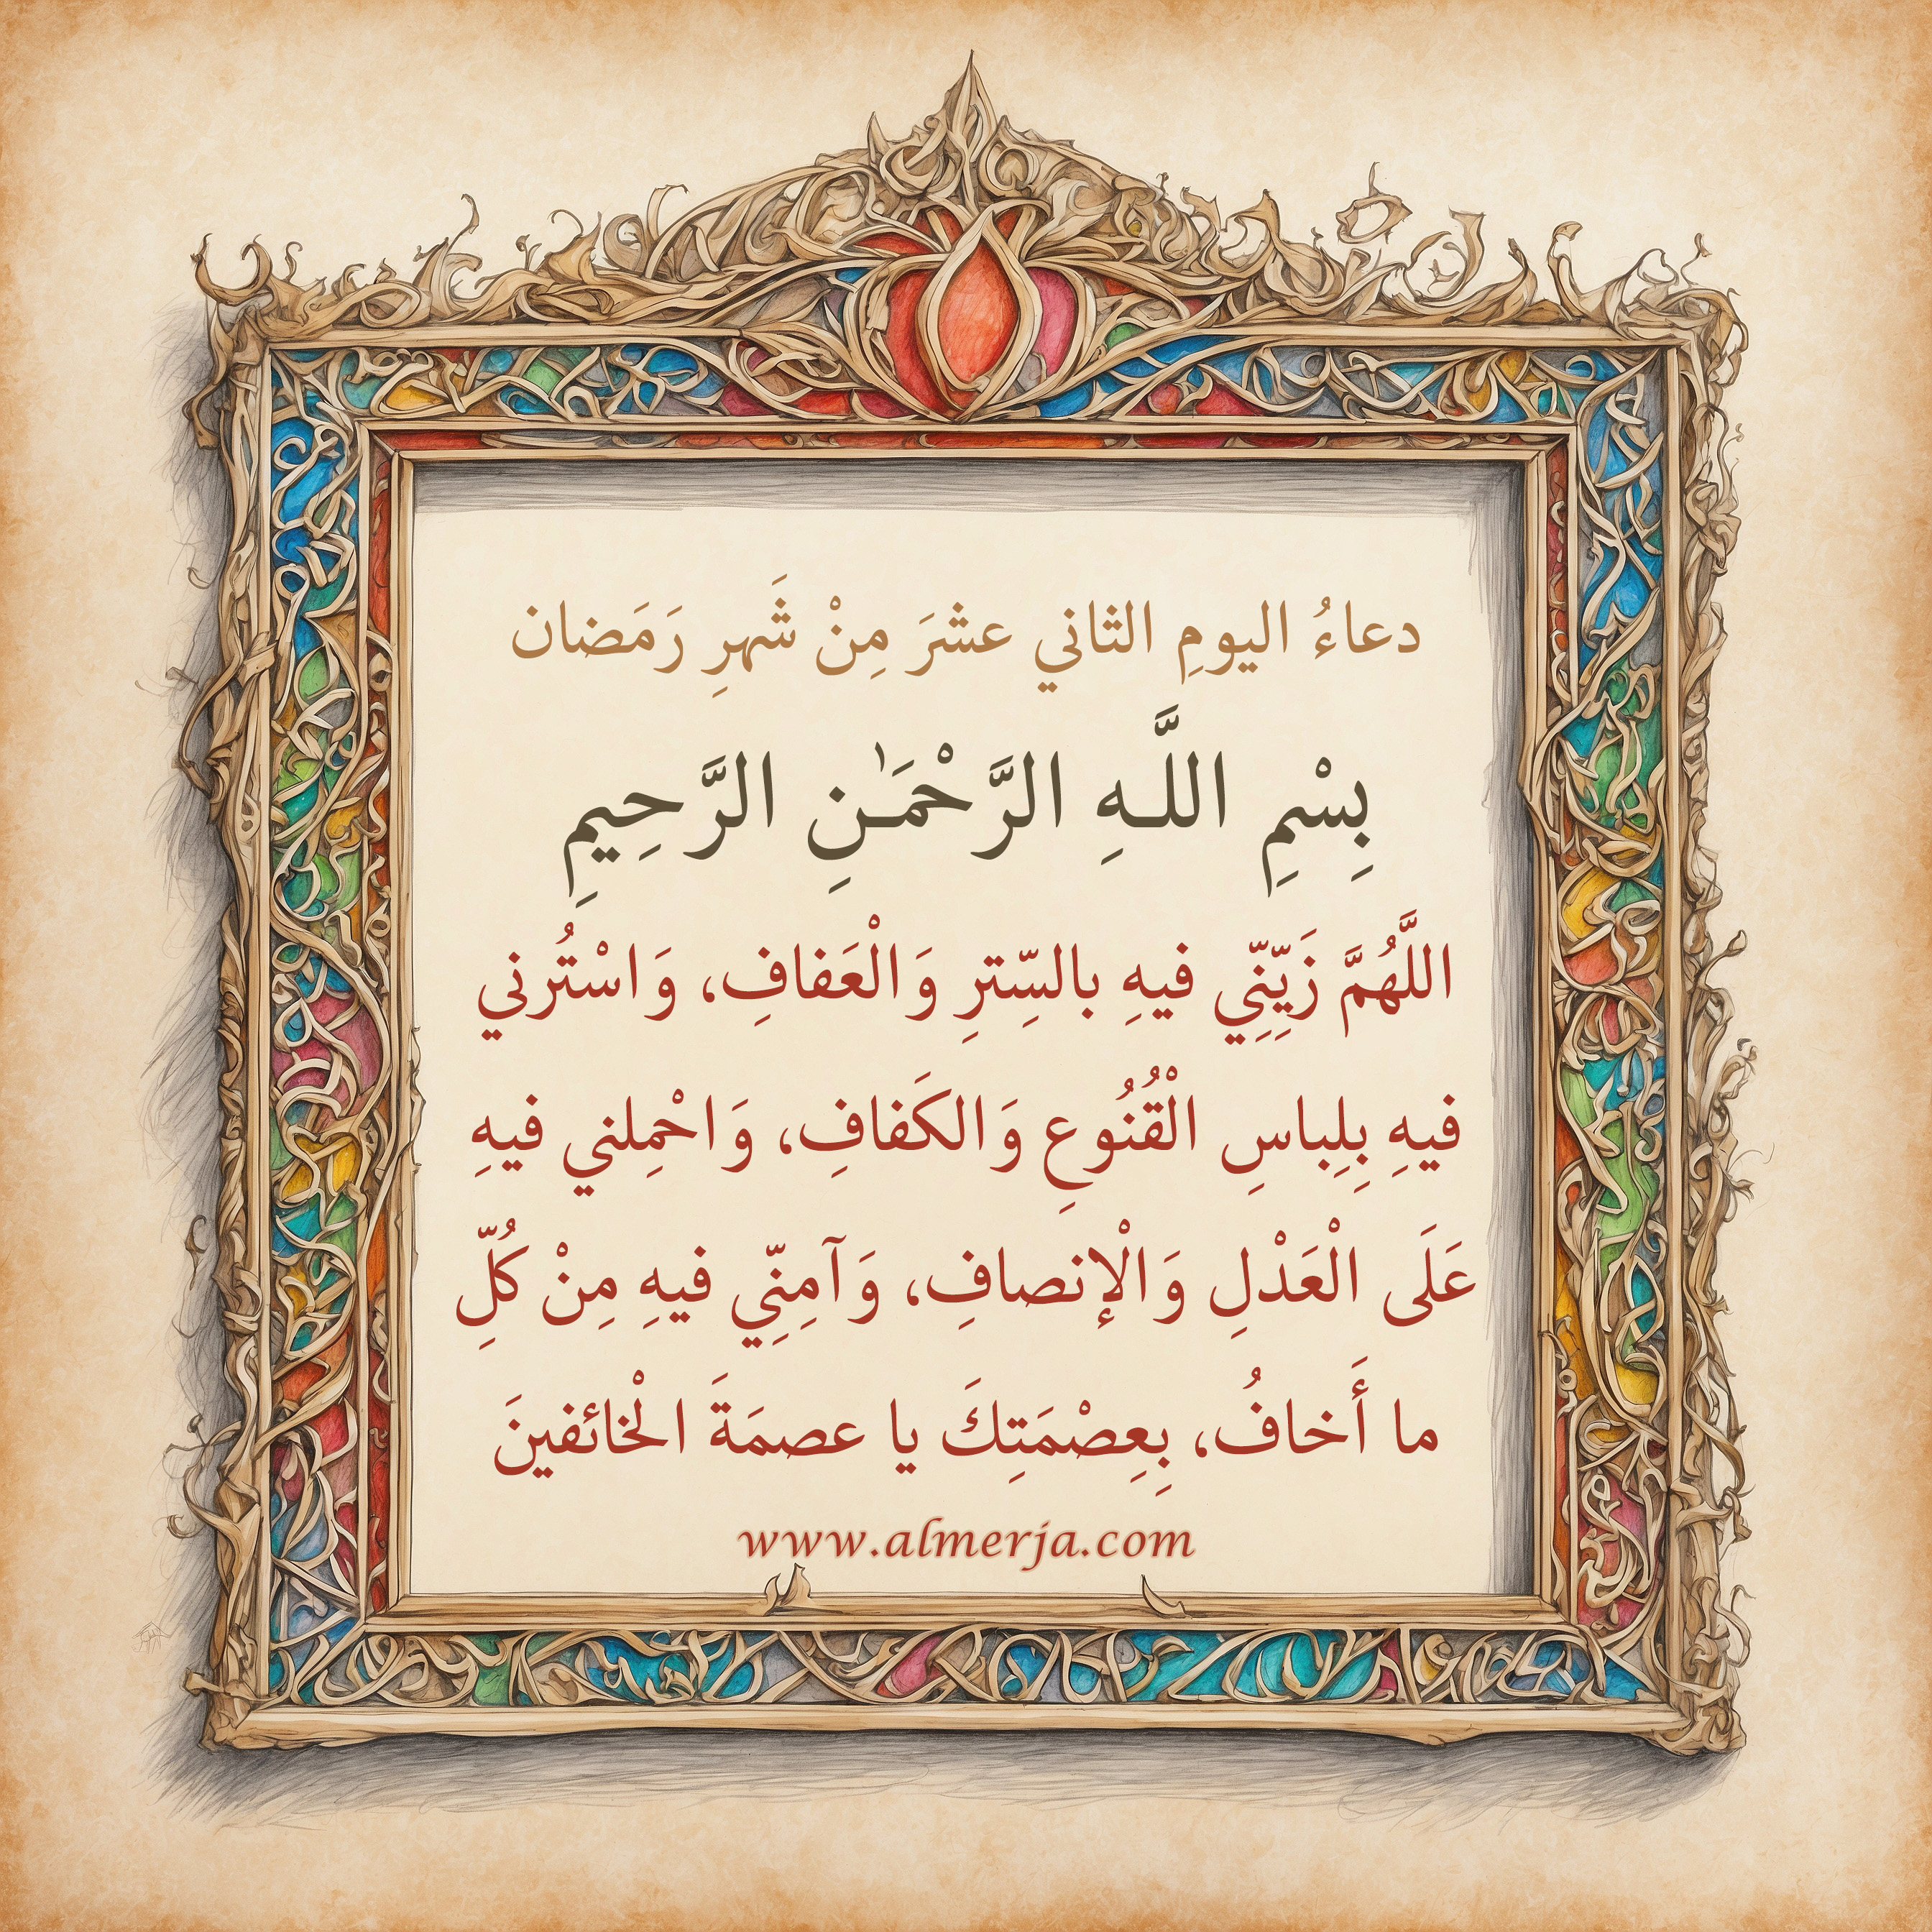 دعاءُ اليومِ الثاني عشرَ مِنْ شَهرِ رَمَضان
بِسْمِ اللَّـهِ الرَّحْمَـٰنِ الرَّحِيمِ
اللَّهُمَّ زَيِّنِّي فيهِ بالسِّترِ وَالْعَفافِ، وَاسْتُرني
فيهِ بِلِباسِ الْقُنُوعِ وَالكَفافِ، وَاحْمِلني فيهِ
عَلَى الْعَدْلِ وَالْإنصافِ، وَآمِنِّي فيهِ مِنْ كُلِّ
ما أَخافُ، بِعِصْمَتِكَ يا عصمَةَ الْخائفينَ
www.almerja.com